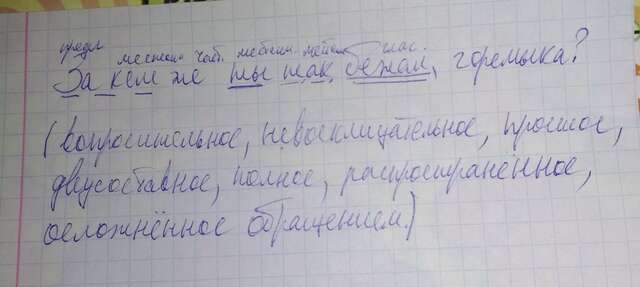 предл местоим част. местоим. местоим глаг.
За кем же ты так бежал, горемыка?
(вопросительное, невосклицательное, простое,
двусоставное, полное, распространённое,
осложнённое обращением.)